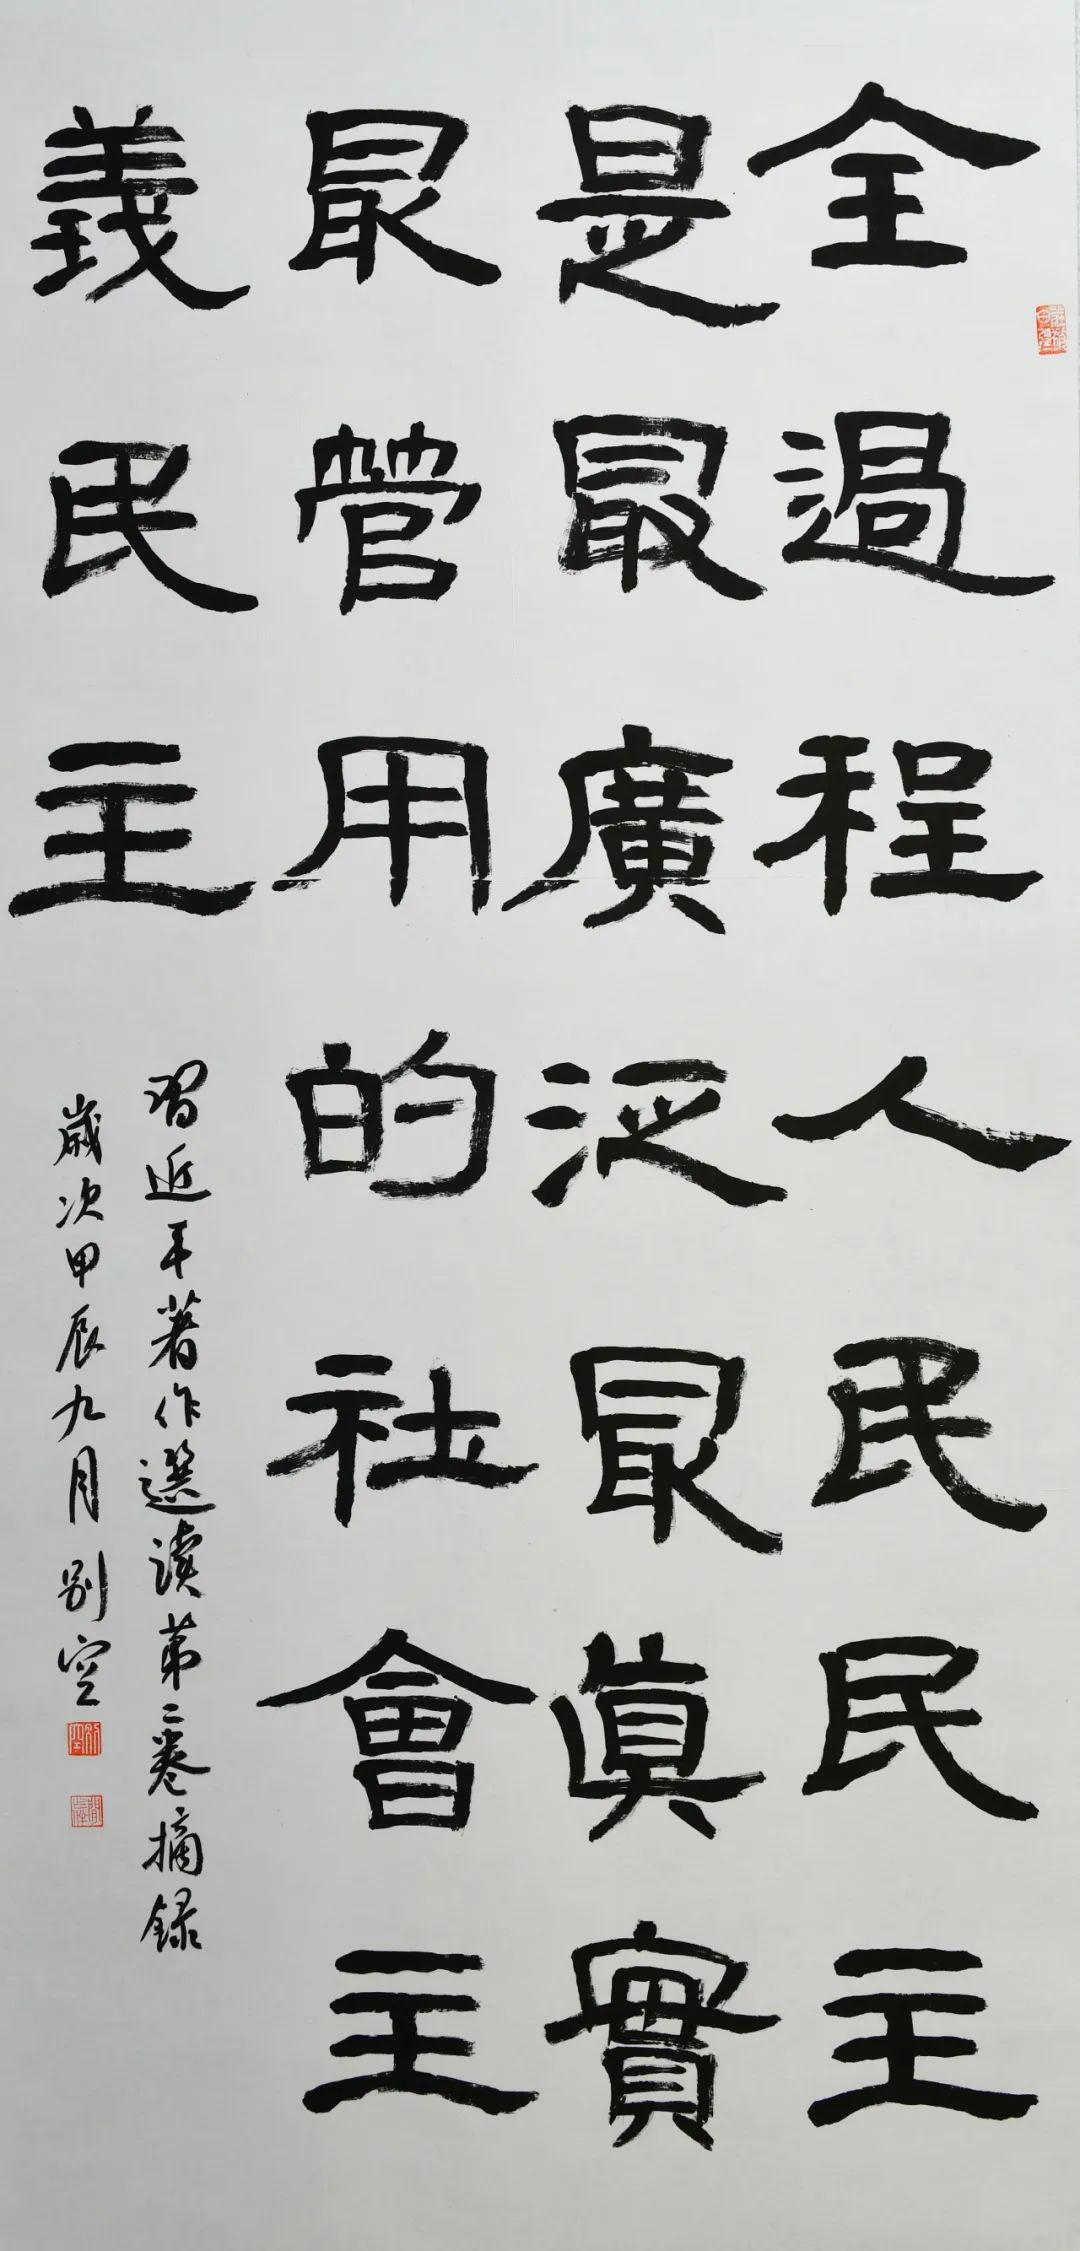 全過程人民民主
是最廣泛最真實
最管用的社會主
義民主
習近平著作選讀第二卷摘録
歲次甲辰九月別空